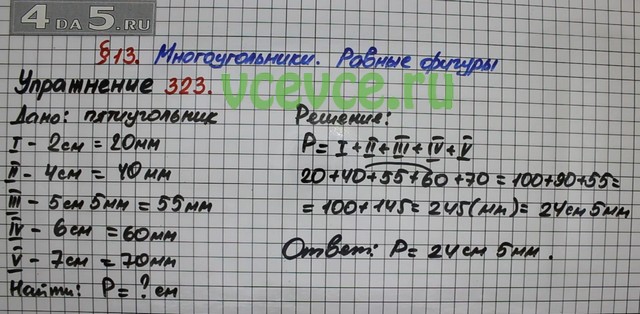 4 DA 5.RU
§13. Многоугольники. Равные фигуры
Упражнение 323.
vcevce.ru
Дано: пятиугольник
I - 2см = 20мм
II - 4см = 40мм
III - 5см 5мм = 55мм
IV - 6см = 60мм
V - 7см = 70мм
Найти: P = ? см
Решение:
P = I + II + III + IV + V
20+40+55+60+70 = 100+90+55=
= 100+145 = 245(мм) = 24см 5мм
Ответ: P = 24см 5мм.